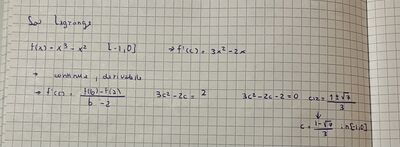 Lagrange
f(x) = x³ - x² [-1,0] → f'(c) = 3x² - 2x
→ continue, derivabile
→ f'(c) = f(b) - f(a) / b - a 3c² - 2c = 2 3c² - 2c - 2 = 0 c₁,₂ = 1 ± √7 / 3
↓
c = 1 - √7 / 3 in [-1,0]